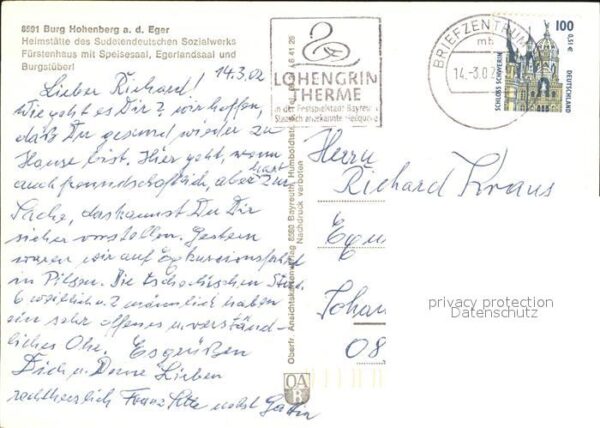 8591 Burg Hohenberg a. d. Eger
Heimstätte des Sudetendeutschen Sozialwerks
Fürstenhaus mit Speisesaal, Egerlandsaal und
Burgstüberl
14.3.02
Lieber Richard!
Wie geht es Dir? wir hoffen,
daß Du gesund wieder zu
Hause bist. Hier geht, wenn
auch freundschaftlich, aber hart zur
Sache, das kannst Du Dir
sicher vorstellen. Gestern
waren wir auf Exkursionsfahrt
in Pilsen. Die tschechischen
6 weiblich u. 2 männlich haben
ein sehr offenes u. verständ-
liches Ohr. Es grüßen
Dich u. Deine Lieben
recht herzlich Franz
Oberfr. Ansichtskartenverlag 8580 Bayreuth, Humboldtstr.
Nachdruck verboten
OA
B
LOHENGRIN
THERME
in der Festspielstadt Bayreuth
Staatlich anerkannte Heilquelle
BRIEFZENTRUM
14.-3.02
100
0,51 €
SCHLOSS SCHWERIN
DEUTSCHLAND
Herrn
Richard Kraus
Johan
08
privacy protection
Datenschutz